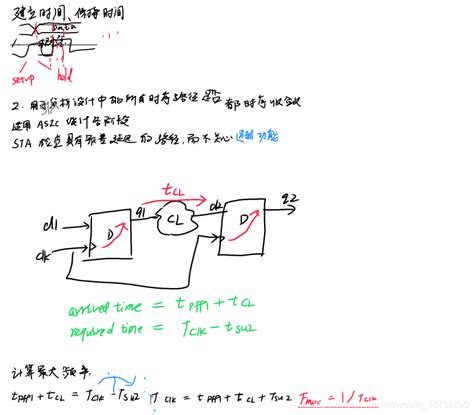 建立时间、保持时间
Data
setup
hold
2. 用于分析设计中的所有时序路径是否都时序收敛
适用 ASIC 设计各阶段
STA 检查具有最差延迟的路径，而不关心逻辑功能
tCL
d1
clk
D
q1
CL
d2
D
q2
arrived time = tPFF1 + tCL
required time = TCLK - tSU2
计算最大频率
tPFF1 + tCL = TCLK - TSU2 TCLK = tPFF1 + tCL + TSU2 Fmax = 1/TCLK